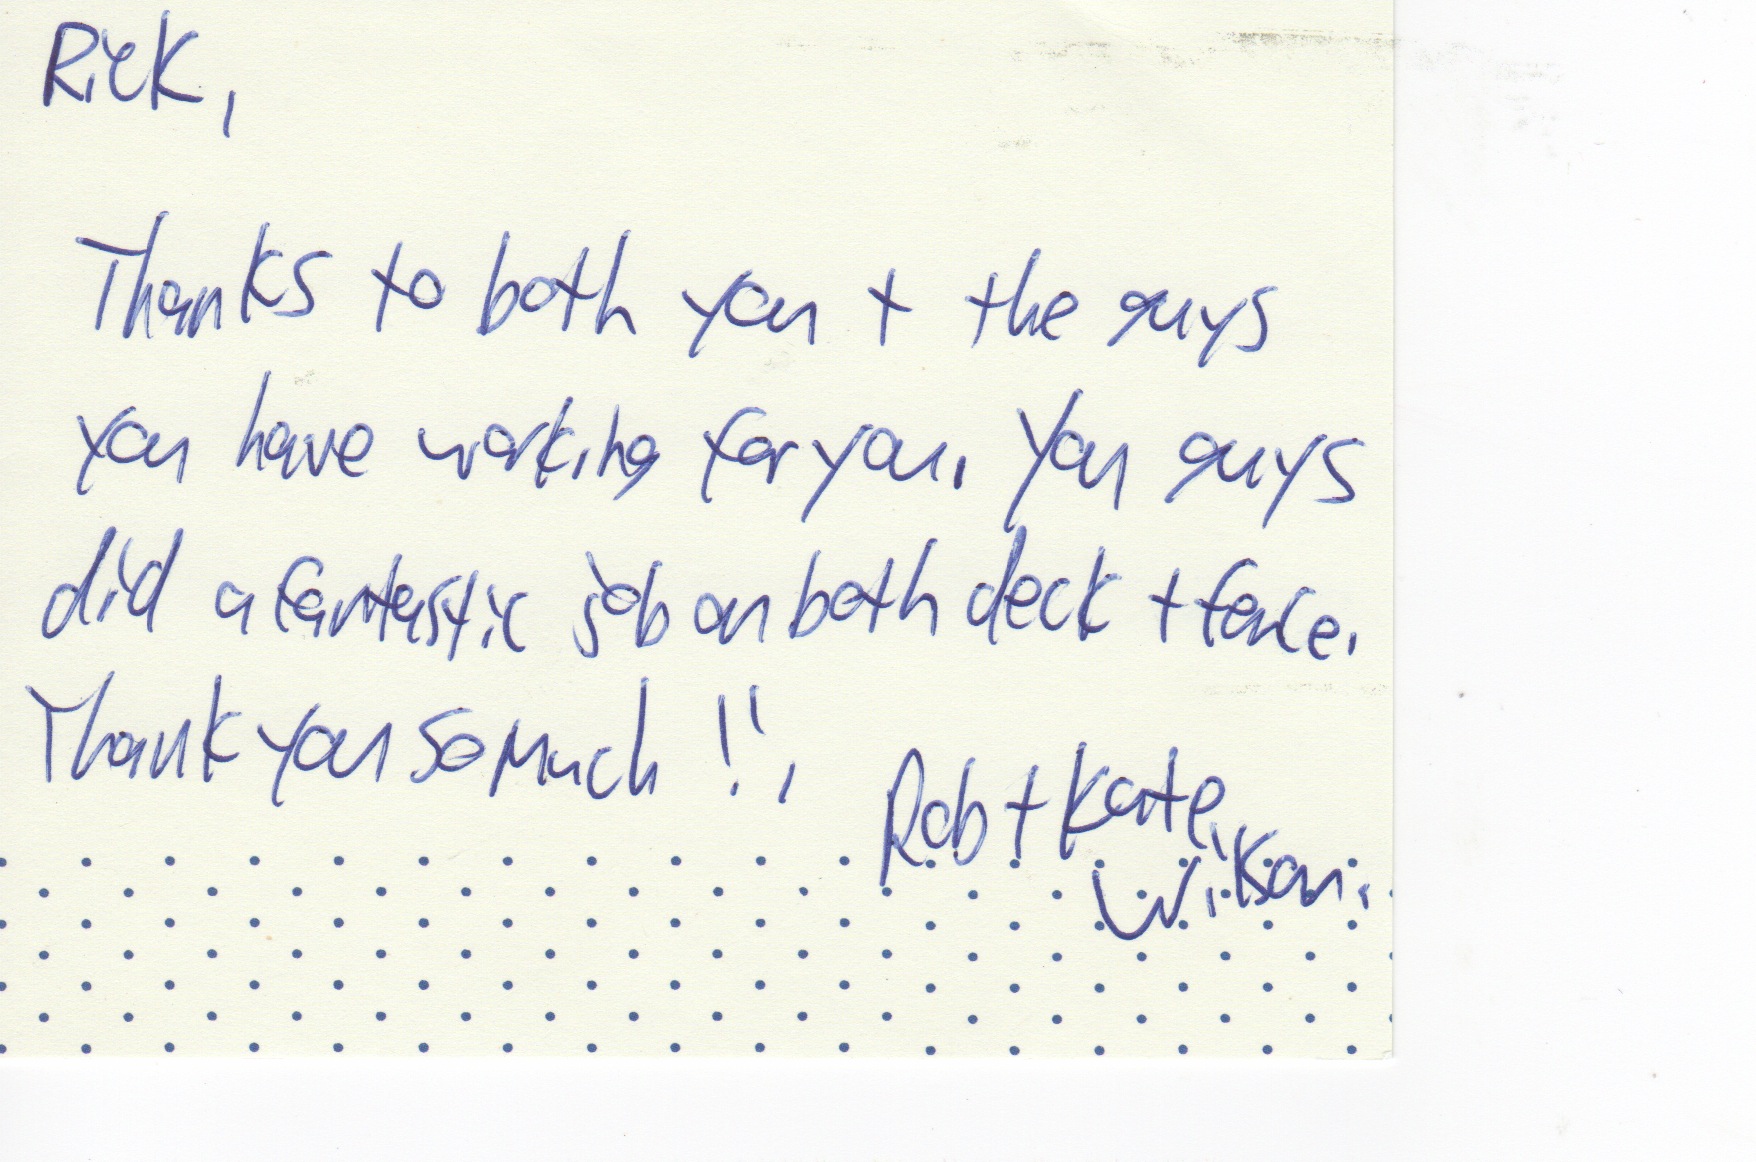 Rick,
Thanks to both you + the guys
you have working for you. You guys
did a fantastic job on both deck + fence.
Thank you so much !!
Rob + Kate
Wilson.